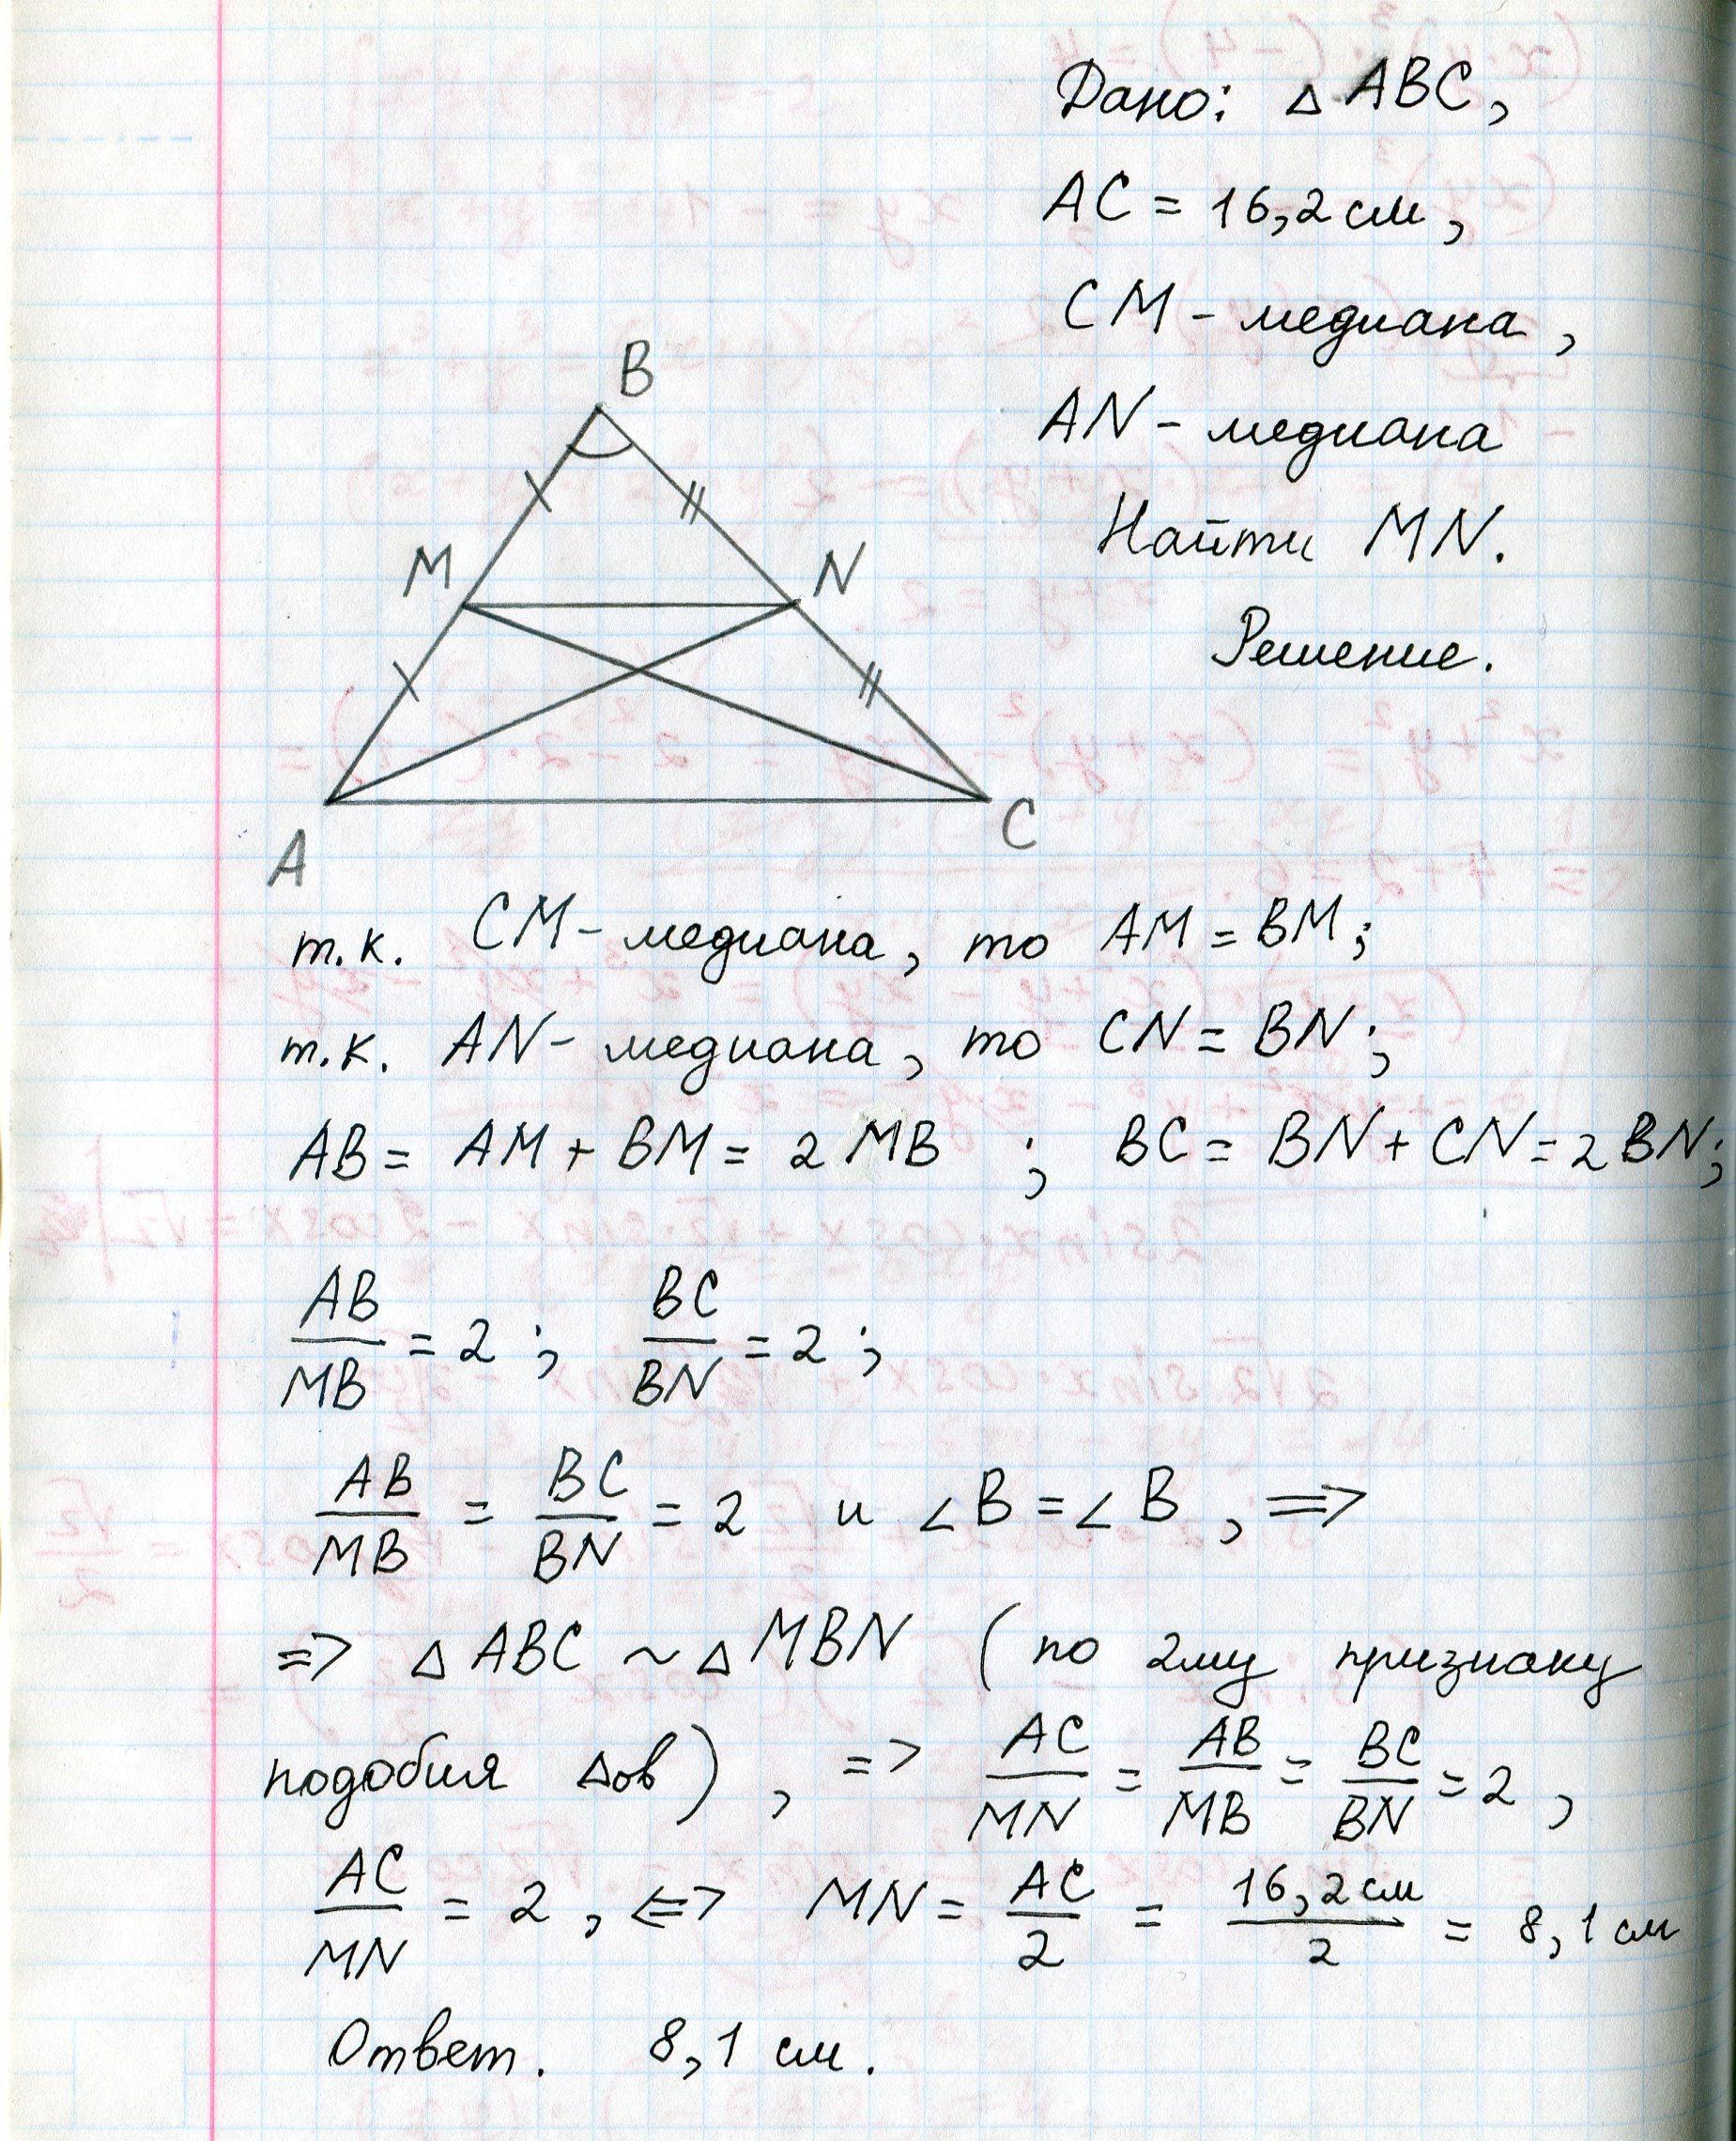 Дано: △ ABC,
AC = 16,2 см,
CM - медиана,
AN - медиана
Найти MN.
Решение.
B
M
N
A
C
т.к. CM - медиана, то AM = BM;
т.к. AN - медиана, то CN = BN;
AB = AM + BM = 2 MB ; BC = BN + CN = 2 BN;
AB/MB = 2 ; BC/BN = 2 ;
AB/MB = BC/BN = 2 и ∠B = ∠B , =>
=> △ ABC ~ △ MBN (по 2му признаку
подобия △ов) , => AC/MN = AB/MB = BC/BN = 2 ,
AC/MN = 2 , <=> MN = AC/2 = 16,2 см/2 = 8,1 см
Ответ. 8,1 см.